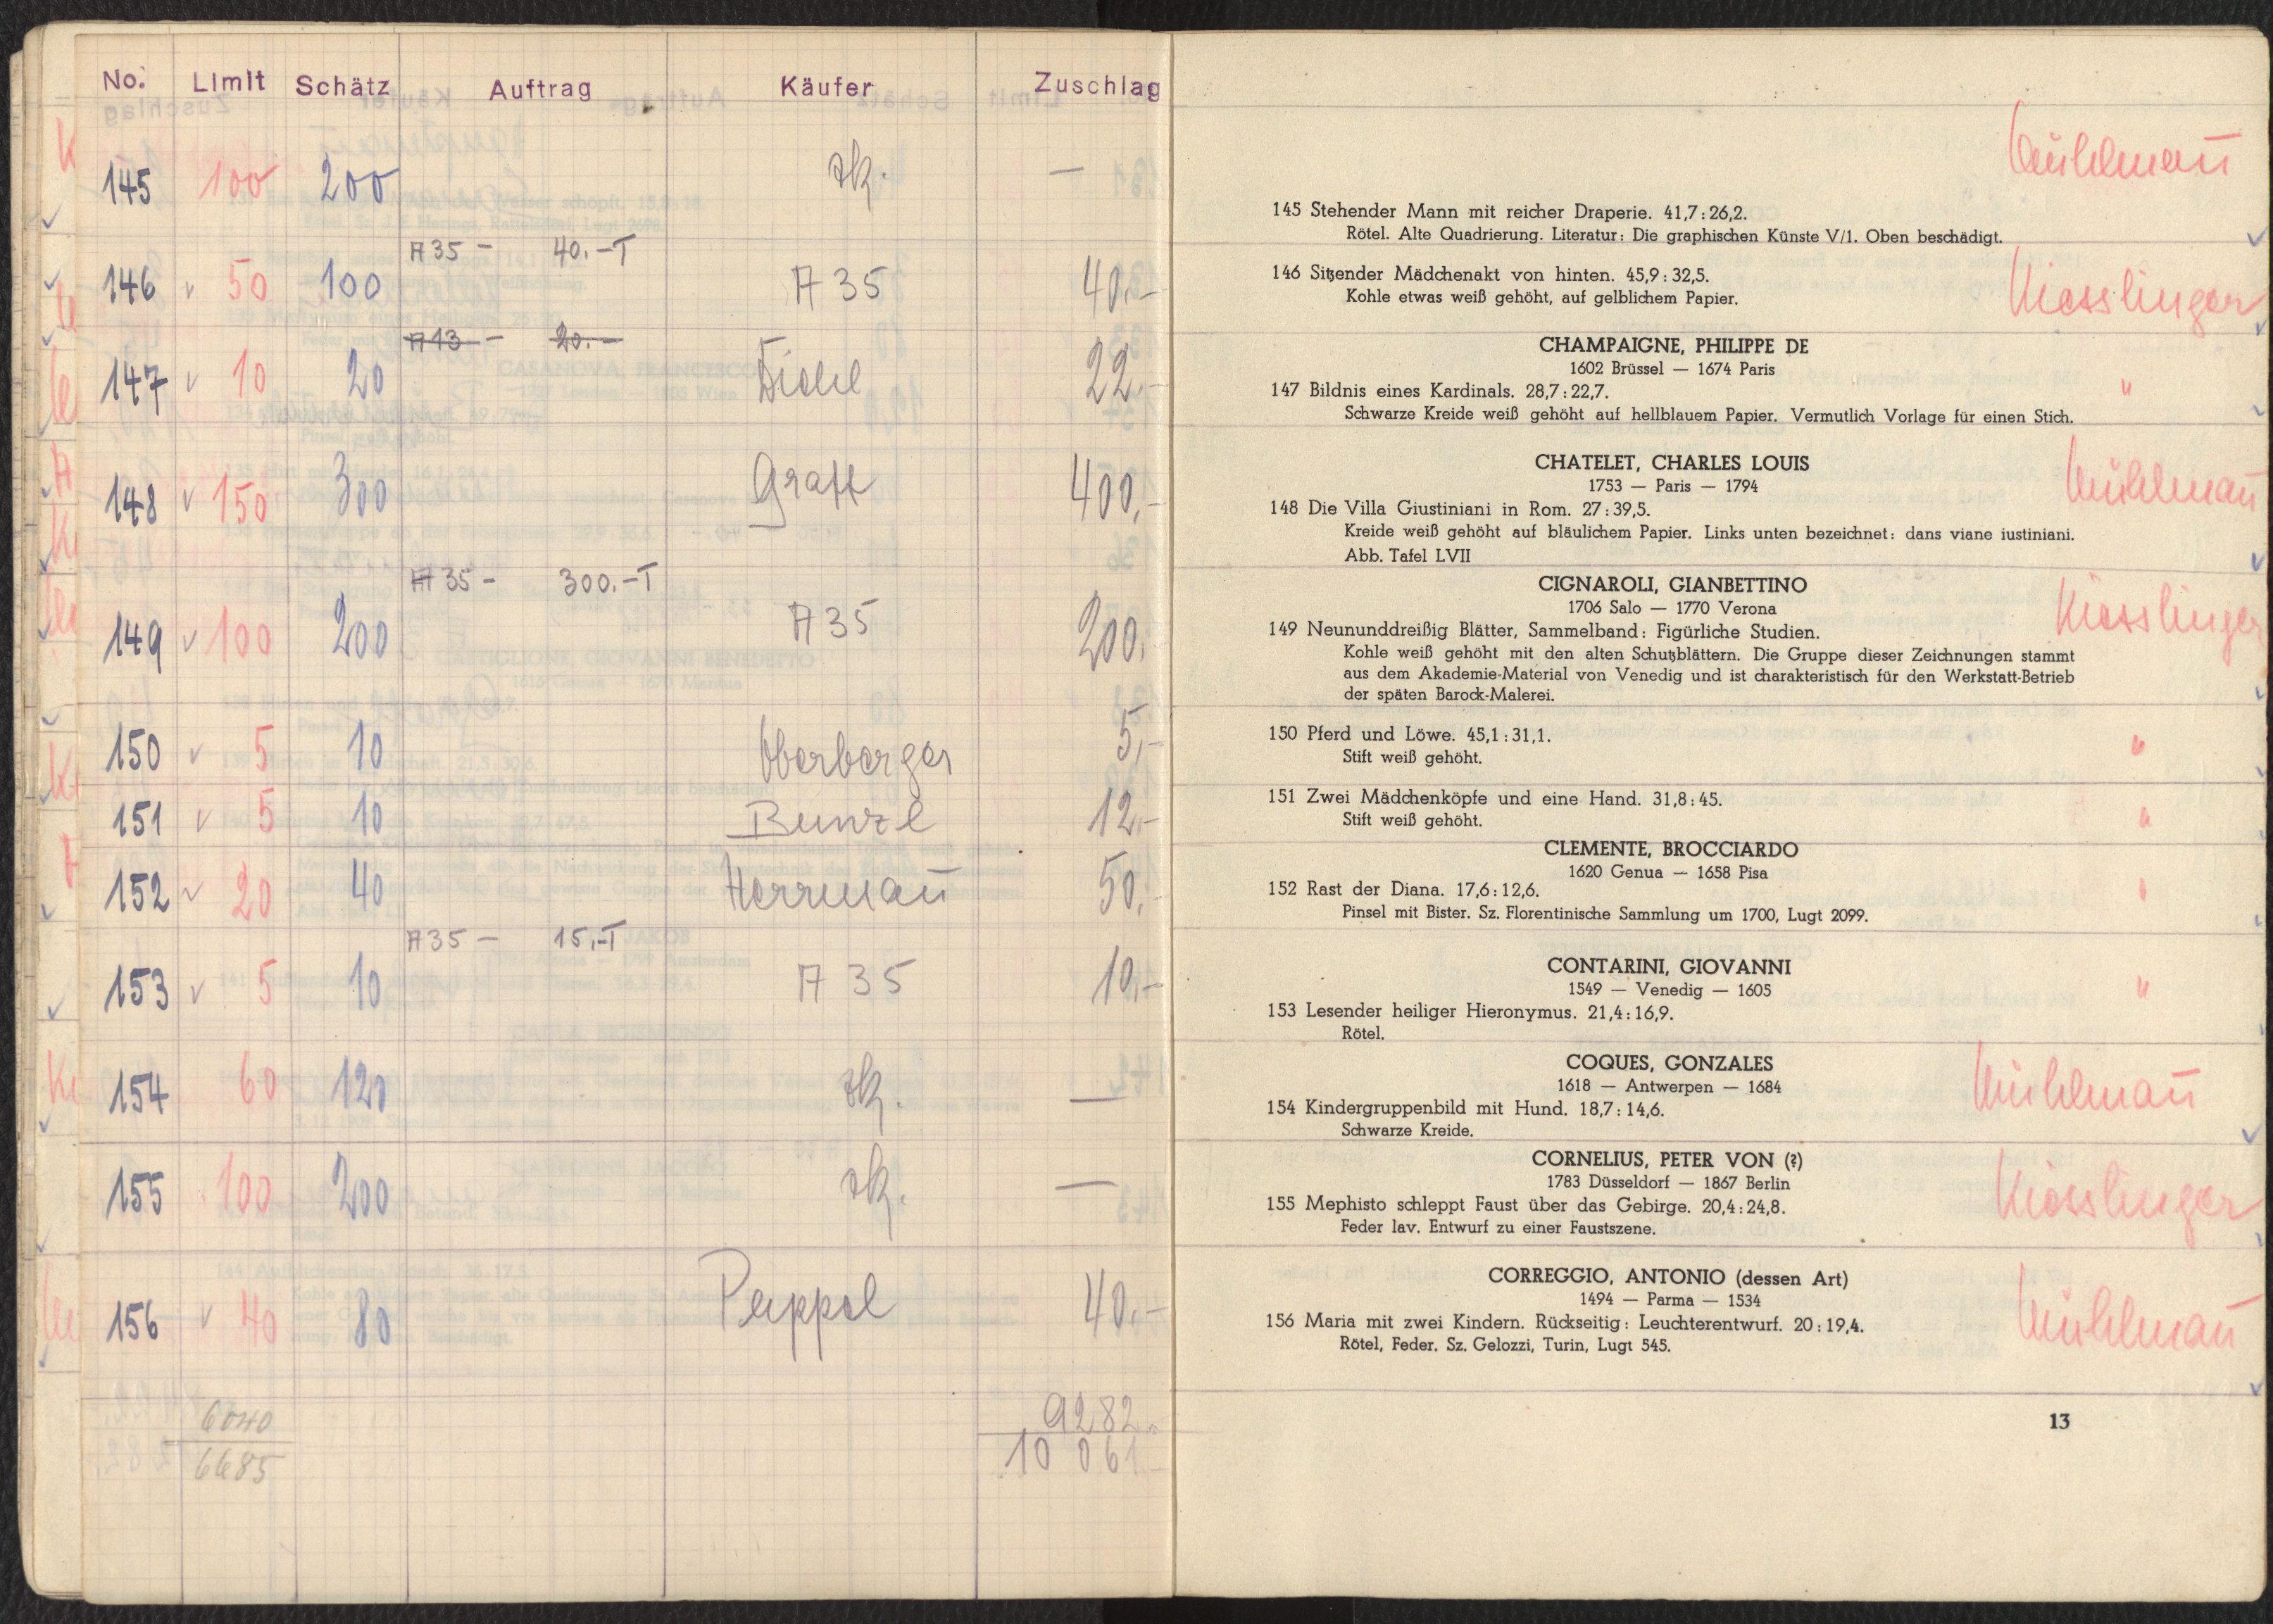 No. Limit Schätz Auftrag Käufer Zuschlag
145 100 200 zk. —
A 35 - 40.-T
146 v 50 100 A 35 40.-
A 13 - 20.-
147 v 10 20 22.-
148 v 150 300 Graff 400,-
A 35 - 300.-T
149 v 100 200 A 35 200.
150 v 5 10 Oberberger 5,-
151 v 5 10 Bunzl 12.-
152 v 20 40 Herrmañ 50,-
A 35 - 15.-T
153 v 5 10 A 35 10,-
154 60 120 zk. —
155 100 200 zk. —
156 v 40 80 Peppel 40.-
6040 9282.-
6685 10 061.-
Mühlmañ
145 Stehender Mann mit reicher Draperie. 41,7 : 26,2.
Rötel. Alte Quadrierung. Literatur: Die graphischen Künste V/1. Oben beschädigt.
146 Sitzender Mädchenakt von hinten. 45,9 : 32,5. Kiesslinger
Kohle etwas weiß gehöht, auf gelblichem Papier.
CHAMPAIGNE, PHILIPPE DE
1602 Brüssel — 1674 Paris
147 Bildnis eines Kardinals. 28,7 : 22,7. "
Schwarze Kreide weiß gehöht auf hellblauem Papier. Vermutlich Vorlage für einen Stich.
CHATELET, CHARLES LOUIS
1753 — Paris — 1794 Mühlmañ
148 Die Villa Giustiniani in Rom. 27 : 39,5.
Kreide weiß gehöht auf bläulichem Papier. Links unten bezeichnet: dans viane iustiniani.
Abb. Tafel LVII
CIGNAROLI, GIANBETTINO
1706 Salo — 1770 Verona Kiesslinger
149 Neununddreißig Blätter, Sammelband: Figürliche Studien.
Kohle weiß gehöht mit den alten Schutzblättern. Die Gruppe dieser Zeichnungen stammt
aus dem Akademie-Material von Venedig und ist charakteristisch für den Werkstatt-Betrieb
der späten Barock-Malerei.
150 Pferd und Löwe. 45,1 : 31,1. "
Stift weiß gehöht.
151 Zwei Mädchenköpfe und eine Hand. 31,8 : 45. "
Stift weiß gehöht.
CLEMENTE, BROCCIARDO
1620 Genua — 1658 Pisa
152 Rast der Diana. 17,6 : 12,6. "
Pinsel mit Bister. Sz. Florentinische Sammlung um 1700, Lugt 2099.
CONTARINI, GIOVANNI
1549 — Venedig — 1605 "
153 Lesender heiliger Hieronymus. 21,4 : 16,9.
Rötel.
COQUES, GONZALES
1618 — Antwerpen — 1684 Mühlmañ
154 Kindergruppenbild mit Hund. 18,7 : 14,6.
Schwarze Kreide.
CORNELIUS, PETER VON (?)
1783 Düsseldorf — 1867 Berlin Kiesslinger
155 Mephisto schleppt Faust über das Gebirge. 20,4 : 24,8.
Feder lav. Entwurf zu einer Faustszene.
CORREGGIO, ANTONIO (dessen Art)
1494 — Parma — 1534 Mühlmañ
156 Maria mit zwei Kindern. Rückseitig: Leuchterentwurf. 20 : 19,4.
Rötel, Feder. Sz. Gelozzi, Turin, Lugt 545.
13